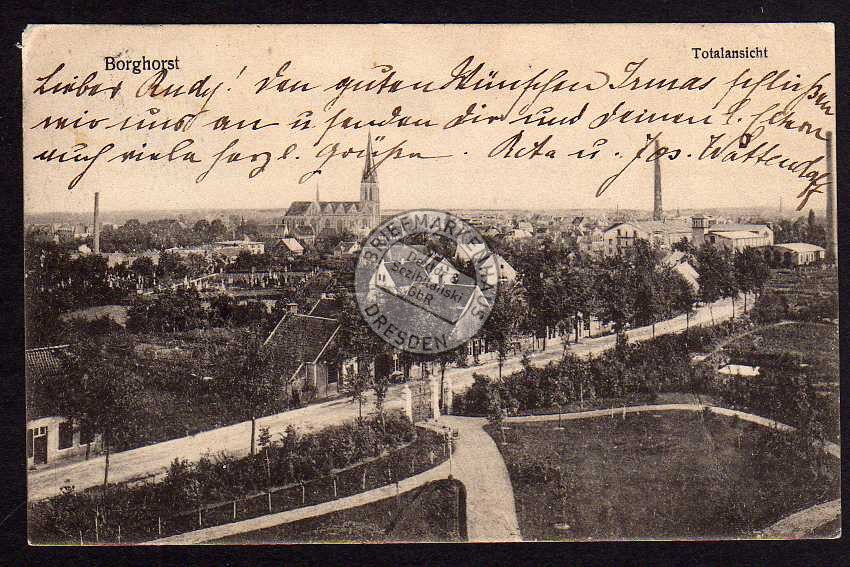 Borghorst
Totalansicht
Lieber Rudy! Den guten Wünschen Irmas schließen
wir uns an u senden Dir und deinen l. Eltern
auch viele herzl. Grüße. Rita u. Jos. Wattendorf
BRIEFMARKENHAUS
Detlef
Szczibilanski
GbR
DRESDEN